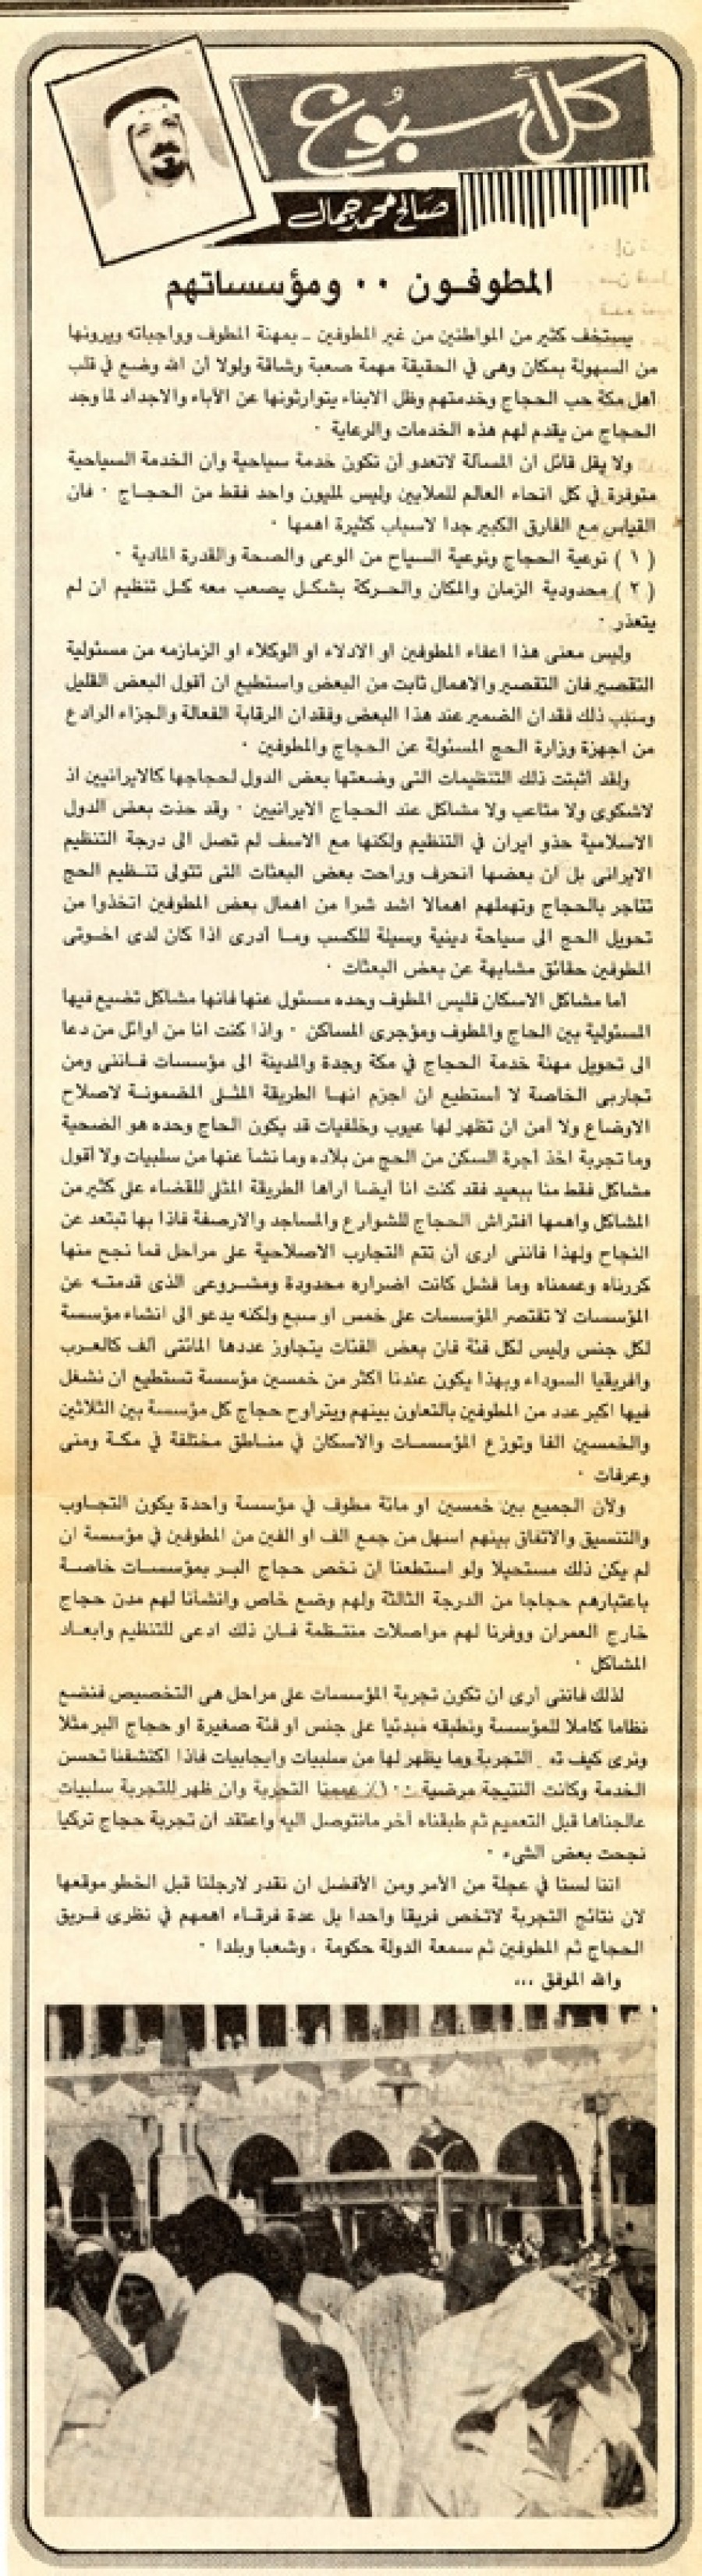 كل أسبوع
صالح محمد جمال
المطوفون ٠٠ ومؤسساتهم
يستخف كثير من المواطنين من غير المطوفين ـ بمهنة المطوف وواجباته ويرونها
من السهولة بمكان وهى في الحقيقة مهمة صعبة وشاقة ولولا أن الله وضع في قلب
أهل مكة حب الحجاج وخدمتهم وظل الابناء يتوارثونها عن الآباء والاجداد لما وجد
الحجاج من يقدم لهم هذه الخدمات والرعاية ٠
ولا يقل قائل ان المسألة لاتعدو أن تكون خدمة سياحية وان الخدمة السياحية
متوفرة في كل انحاء العالم للملايين وليس لمليون واحد فقط من الحجاج ٠ فان
القياس مع الفارق الكبير جدا لاسباب كثيرة اهمها ٠
( ١ ) نوعية الحجاج ونوعية السياح من الوعى والصحة والقدرة المادية ٠
( ٢ ) محدودية الزمان والمكان والحركة بشكل يصعب معه كل تنظيم ان لم
يتعذر ٠
وليس معنى هذا اعفاء المطوفين او الادلاء او الوكلاء او الزمازمه من مسئولية
التقصير فان التقصير والاهمال ثابت من البعض واستطيع ان أقول البعض القليل
وسبب ذلك فقدان الضمير عند هذا البعض وفقدان الرقابة الفعالة والجزاء الرادع
من اجهزة وزارة الحج المسئولة عن الحجاج والمطوفين ٠
ولقد أثبتت ذلك التنظيمات التى وضعتها بعض الدول لحجاجها كالايرانيين اذ
لاشكوى ولا متاعب ولا مشاكل عند الحجاج الايرانيين ٠ وقد حذت بعض الدول
الاسلامية حذو ايران في التنظيم ولكنها مع الاسف لم تصل الى درجة التنظيم
الايرانى بل ان بعضها انحرف وراحت بعض البعثات التى تتولى تنظيم الحج
تتاجر بالحجاج وتهملهم اهمالا اشد شرا من اهمال بعض المطوفين اتخذوا من
تحويل الحج الى سياحة دينية وسيلة للكسب وما أدرى اذا كان لدى اخوتى
المطوفين حقائق مشابهة عن بعض البعثات ٠
أما مشاكل الاسكان فليس المطوف وحده مسئول عنها فانها مشاكل تضيع فيها
المسئولية بين الحاج والمطوف ومؤجرى المساكن ٠ واذا كنت انا من اوائل من دعا
الى تحويل مهنة خدمة الحجاج في مكة وجدة والمدينة الى مؤسسات فاننى ومن
تجاربى الخاصة لا أستطيع ان اجزم انها الطريقة المثلى المضمونة لاصلاح
الاوضاع ولا آمن ان تظهر لها عيوب وخلفيات قد يكون الحاج وحده هو الضحية
وما تجربة اخذ أجرة السكن من الحج من بلاده وما نشأ عنها من سلبيات ولا أقول
مشاكل فقط منا ببعيد فقد كنت انا أيضا اراها الطريقة المثلى للقضاء على كثير من
المشاكل واهمها افتراش الحجاج للشوارع والمساجد والارصفة فاذا بها تبتعد عن
النجاح ولهذا فاننى ارى أن تتم التجارب الاصلاحية على مراحل فما نجح منها
كررناه وعممناه وما فشل كانت اضراره محدودة ومشروعى الذى قدمته عن
المؤسسات لا تقتصر المؤسسات على خمس او سبع ولكنه يدعو الى انشاء مؤسسة
لكل جنس وليس لكل فئة فان بعض الفئات يتجاوز عددها المائتى ألف كالعرب
وافريقيا السوداء وبهذا يكون عندنا اكثر من خمسين مؤسسة تستطيع ان نشغل
فيها اكبر عدد من المطوفين بالتعاون بينهم ويتراوح حجاج كل مؤسسة بين الثلاثين
والخمسين الفا وتوزع المؤسسات والاسكان في مناطق مختلفة في مكة ومنى
وعرفات ٠
ولأن الجميع بين خمسين او مائة مطوف في مؤسسة واحدة يكون التجاوب
والتنسيق والاتفاق بينهم اسهل من جمع الف او الفين من المطوفين في مؤسسة ان
لم يكن ذلك مستحيلا ولو استطعنا ان نخص حجاج البر بمؤسسات خاصة
باعتبارهم حجاجا من الدرجة الثالثة ولهم وضع خاص وانشأنا لهم مدن حجاج
خارج العمران ووفرنا لهم مواصلات منتظمة فان ذلك ادعى للتنظيم وابعاد
المشاكل ٠
لذلك فاننى أرى ان تكون تجربة المؤسسات على مراحل هى التخصيص فنضع
نظاما كاملا للمؤسسة ونطبقه مبدئيا على جنس او فئة صغيرة او حجاج البر مثلا
ونرى كيف ته التجربة وما يظهر لها من سلبيات وايجابيات فاذا اكتشفنا تحسن
الخدمة وكانت النتيجة مرضية ١٠٠٪ عممنا التجربة وان ظهر للتجربة سلبيات
عالجناها قبل التعميم ثم طبقناه آخر مانتوصل اليه واعتقد ان تجربة حجاج تركيا
نجحت بعض الشىء ٠
اننا لسنا في عجلة من الأمر ومن الأفضل ان نقدر لارجلنا قبل الخطو موقعها
لان نتائج التجربة لاتخص فريقا واحدا بل عدة فرقاء اهمهم في نظرى فريق
الحجاج ثم المطوفين ثم سمعة الدولة حكومة ، وشعبا وبلدا ٠
والله الموفق ...